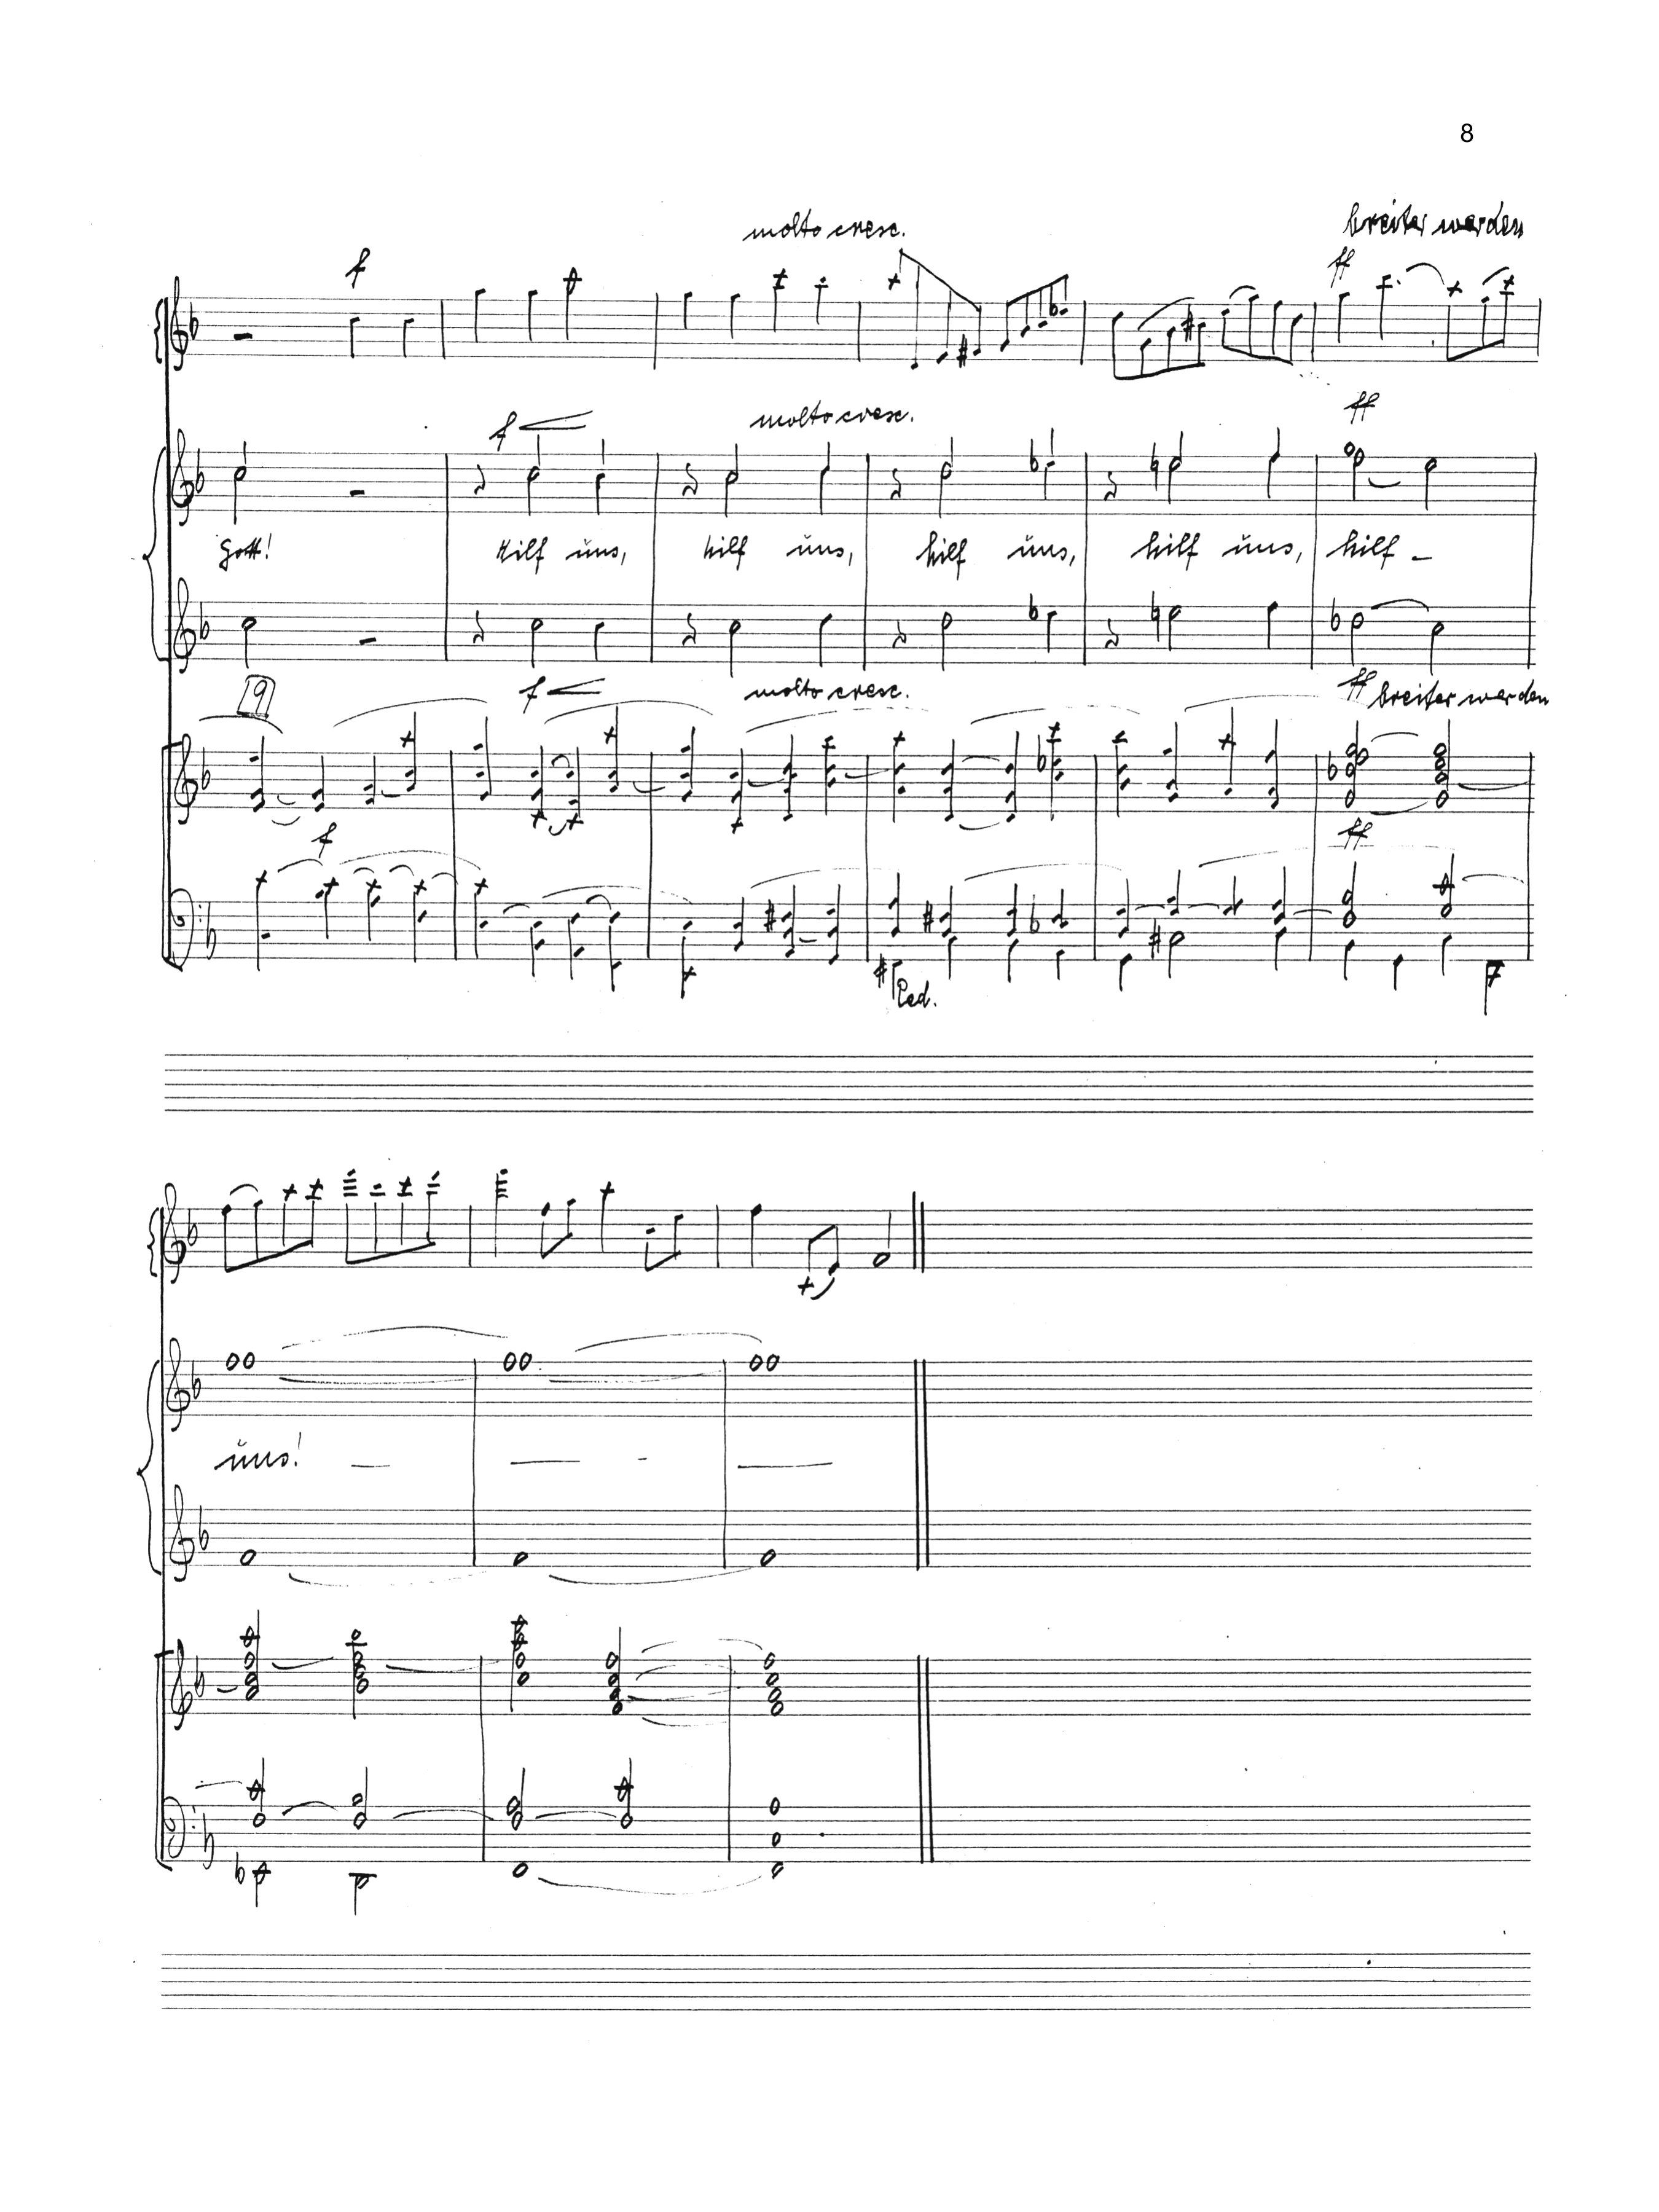 8
molto cresc.
breiter werden
f
ff
f
molto cresc.
ff
Gott! Hilf uns, hilf uns, hilf uns, hilf uns, hilf –
9
f
molto cresc.
ff breiter werden
f
ff
Ped.
uns! — — - —